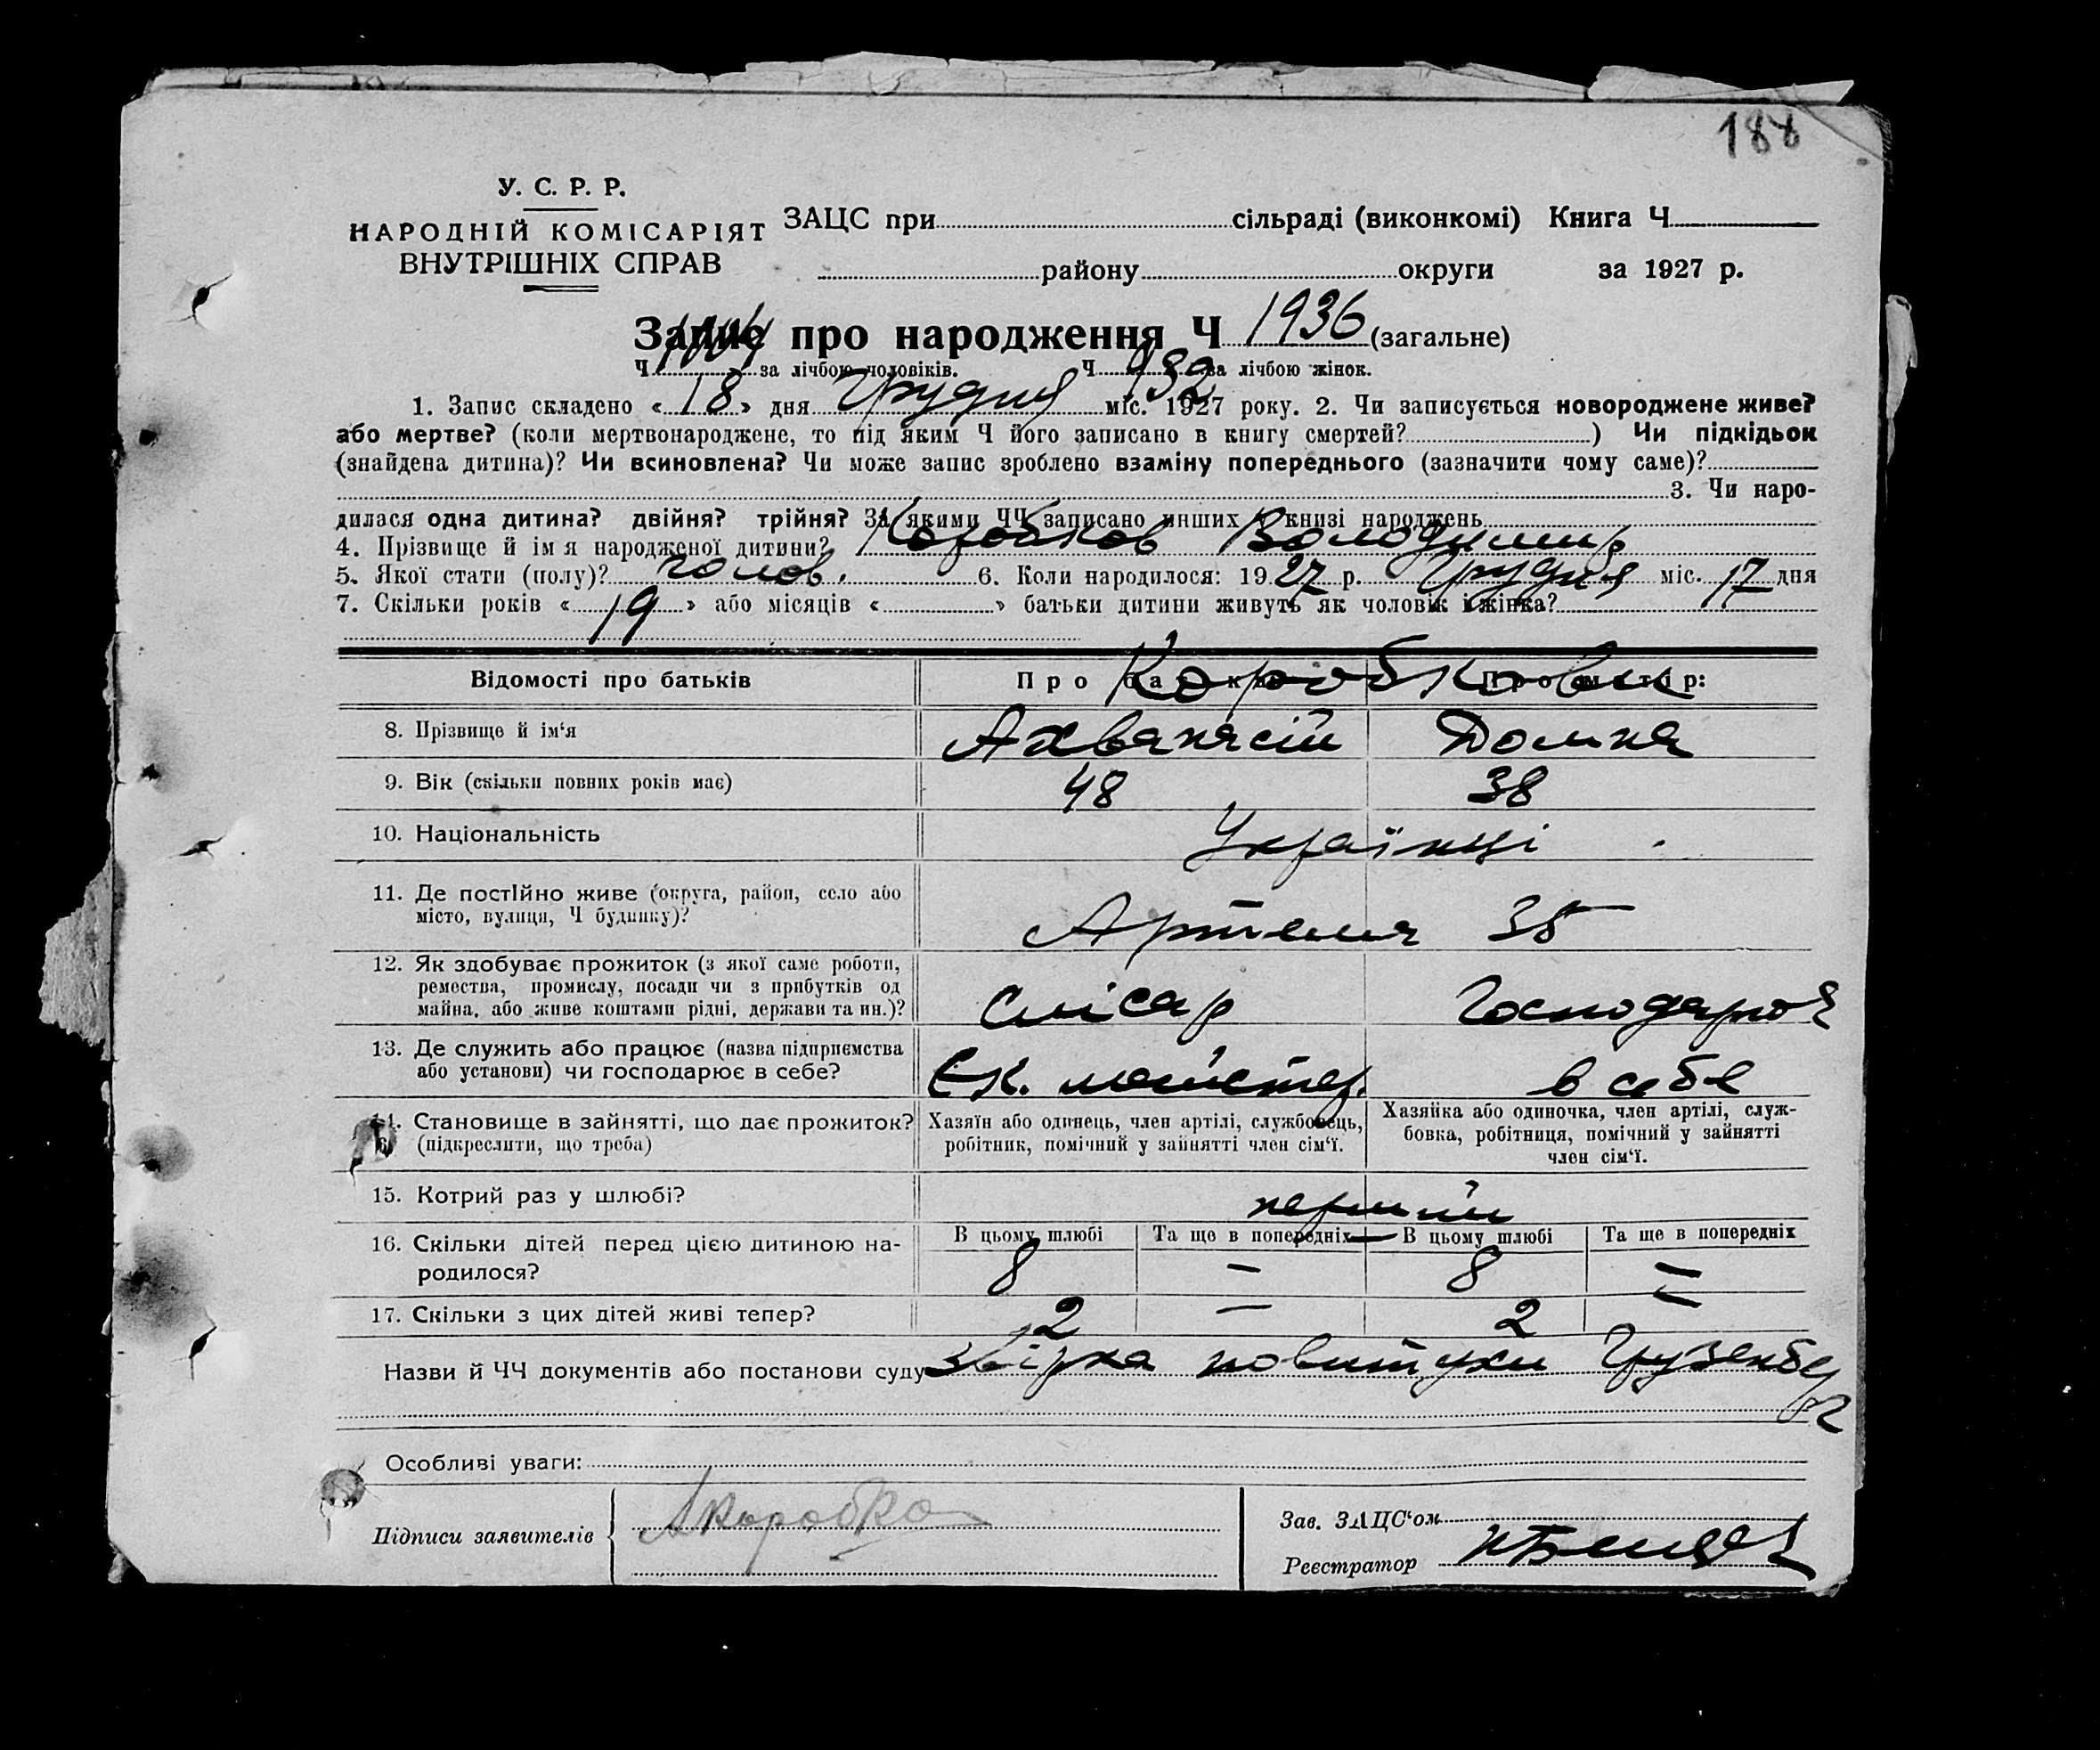 188
У. С. Р. Р.
НАРОДНІЙ КОМІСАРІЯТ
ВНУТРІШНІХ СПРАВ
ЗАЦС при сільраді (виконкомі) Книга Ч
району округи за 1927 р.
Запис про народження Ч 1936 (загальне)
Ч за лічбою чоловіків. Ч 932 за лічбою жінок.
1. Запис складено « 18 » дня Грудня міс. 1927 року. 2. Чи записується новороджене живе?
або мертве? (коли мертвонароджене, то під яким Ч його записано в книгу смертей? ) Чи підкідьок
(знайдена дитина)? Чи всиновлена? Чи може запис зроблено взаміну попереднього (зазначити чому саме)?
3. Чи наро-
дилася одна дитина? двійня? трійня? За якими ЧЧ записано инших у книзі народжень
4. Прізвище й імя народженої дитини? Коробков Володимир
5. Якої стати (полу)? чолов. 6. Коли народилося: 1927 р. Грудня міс. 17 дня
7. Скільки років « 19 » або місяців « » батьки дитини живуть як чоловік і жінка?
Відомості про батьків Про батька: Про матір:
Коробкови
8. Прізвище й ім‘я Ахванасій Домна
9. Вік (скільки повних років має) 48 38
10. Національність Українці
11. Де постійно живе (округа, район, село або
місто, вулиця, Ч будинку)? Артема 35
12. Як здобуває прожиток (з якої саме роботи,
ремества, промислу, посади чи з прибутків од
майна, або живе коштами рідні, держави та ин.)? Слісар Господарює
13. Де служить або працює (назва підприємства
або установи) чи господарює в себе? Єк. майстер. в себе
14. Становище в зайнятті, що дає прожиток?
(підкреслити, що треба)
Хазяїн або одинець, член артілі, службовець,
робітник, помічний у зайнятті член сім‘ї.
Хазяйка або одиночка, член артілі, служ-
бовка, робітниця, помічний у зайнятті
член сім‘ї.
15. Котрий раз у шлюбі? перший
В цьому шлюбі Та ще в попередніх В цьому шлюбі Та ще в попередніх
16. Скільки дітей перед цією дитиною на-
родилося? 8 — 8 —
17. Скільки з цих дітей живі тепер? 2 — 2 —
Назви й ЧЧ документів або постанови суду повитухи
Особливі уваги:
Підписи заявителів АКоробко
Зав. ЗАЦС‘ом
Реєстратор